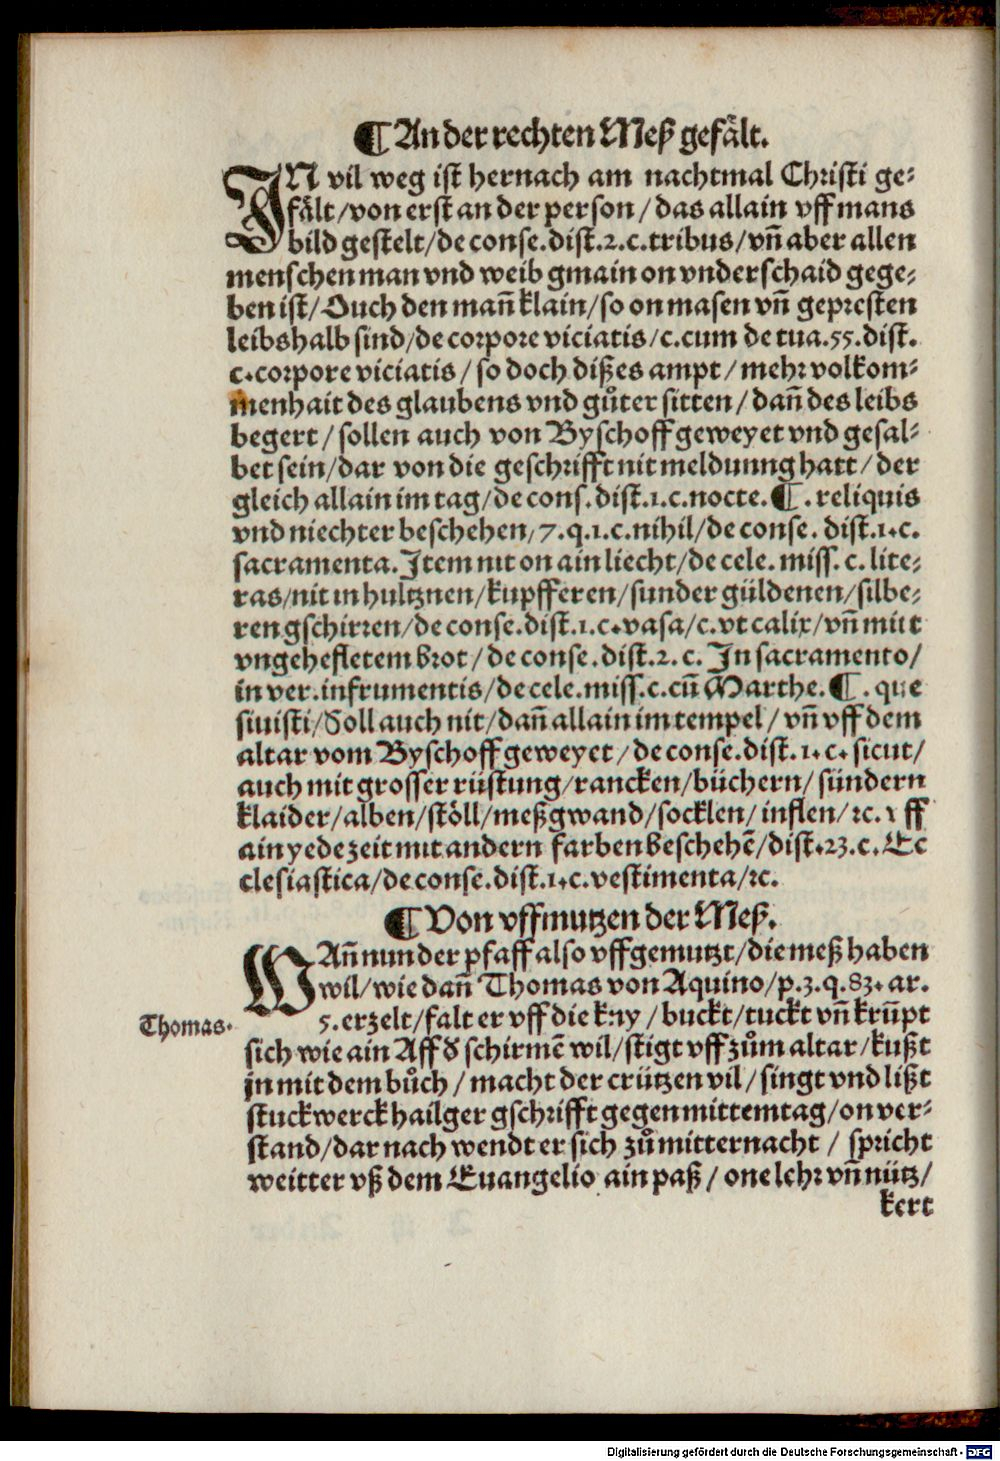 ¶ An der rechten Meß gefält.
IN vil weg ist hernach am nachtmal Christi ge⸗
fält/von erst an der person/das allain vff mans
bild gestelt/de conse.dist.2.c.tribus/vñ aber allen
menschen man vnd weib gmain on vnderschaid gege⸗
ben ist/Ouch den mañ klain/so on masen vñ gepresten
leibshalb sind/de corpore viciatis/c.cum de tua.55.dist.
c.corpore viciatis/so doch dißes ampt/mehr volkom⸗
menhait des glaubens vnd gůter sitten/dañ des leibs
begert/sollen auch von Byschoff geweyet vnd gesal⸗
bet sein/dar von die geschrifft nit meldunng hatt/der
gleich allain im tag/de cons.dist.1.c.nocte.¶.reliquis
vnd niechter beschehen/7.q.1.c.nihil/de conse.dist.1.c.
sacramenta.Item nit on ain liecht/de cele.miss.c.lite⸗
ras/nit in hultznen/kupfferen/sunder güldenen/silbe⸗
ren gschirren/de conse.dist.1.c.vasa/c.vt calix/vñ mitt
vngehefletem brot/de conse.dist.2.c.In sacramento/
in ver.infrumentis/de cele.miss.c.cũ Marthe.¶.que
siuisti/Soll auch nit/dañ allain im tempel/vñ vff dem
altar vom Byschoff geweyet/de conse.dist.1.c.sicut/
auch mit grosser rüstung/rancken/büchern/sündern
klaider/alben/stöll/meßgwand/socklen/inflen/ꝛc.vff
ain yede zeit mit andern farben beschehē/dist.23.c.Ec
clesiastica/de conse.dist.1.c.vestimenta/ꝛc.
¶ Von vffmutzen der Meß.
WAñ nun der pfaff also vffgemutzt/die meß haben
wil/wie dañ Thomas von Aquino/p.3.q.83.ar.
Thomas.
5.erzelt/falt er vff die kny/buckt/tuckt vñ krũpt
sich wie ain Aff ð schirmē wil/stigt vff zům altar/kußt
jn mit dem bůch/macht der crützen vil/singt vnd lißt
stuckwerck hailger gschrifft gegen mittemtag/on ver⸗
stand/dar nach wendt er sich zů mitternacht/spricht
weitter vß dem Euangelio ain paß/one lehr vñ nütz/
kert
Digitalisierung gefördert durch die Deutsche Forschungsgemeinschaft - DFG